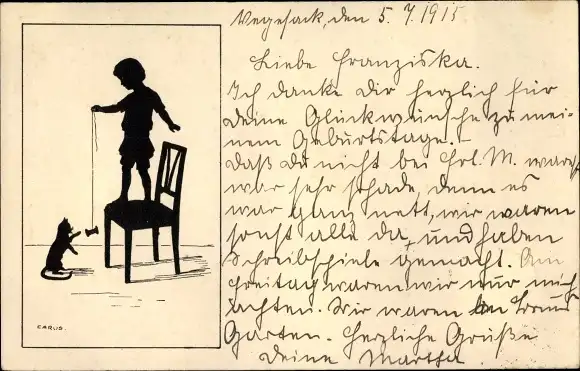 Vegesack, den 5. 7. 1915
Liebe Franziska.
Ich danke Dir herzlich für
deine Glückwünsche zu mei-
nem Geburtstage. -
Daß du nicht bei Frl. M. warest
war sehr schade, denn es
war ganz nett, wir waren
sonst alle da, und haben
Schreibspiele gemacht. Am
Freitag waren wir nur
achten. Wir waren
Garten. Herzliche Grüße
Deine Martha
CARUS.